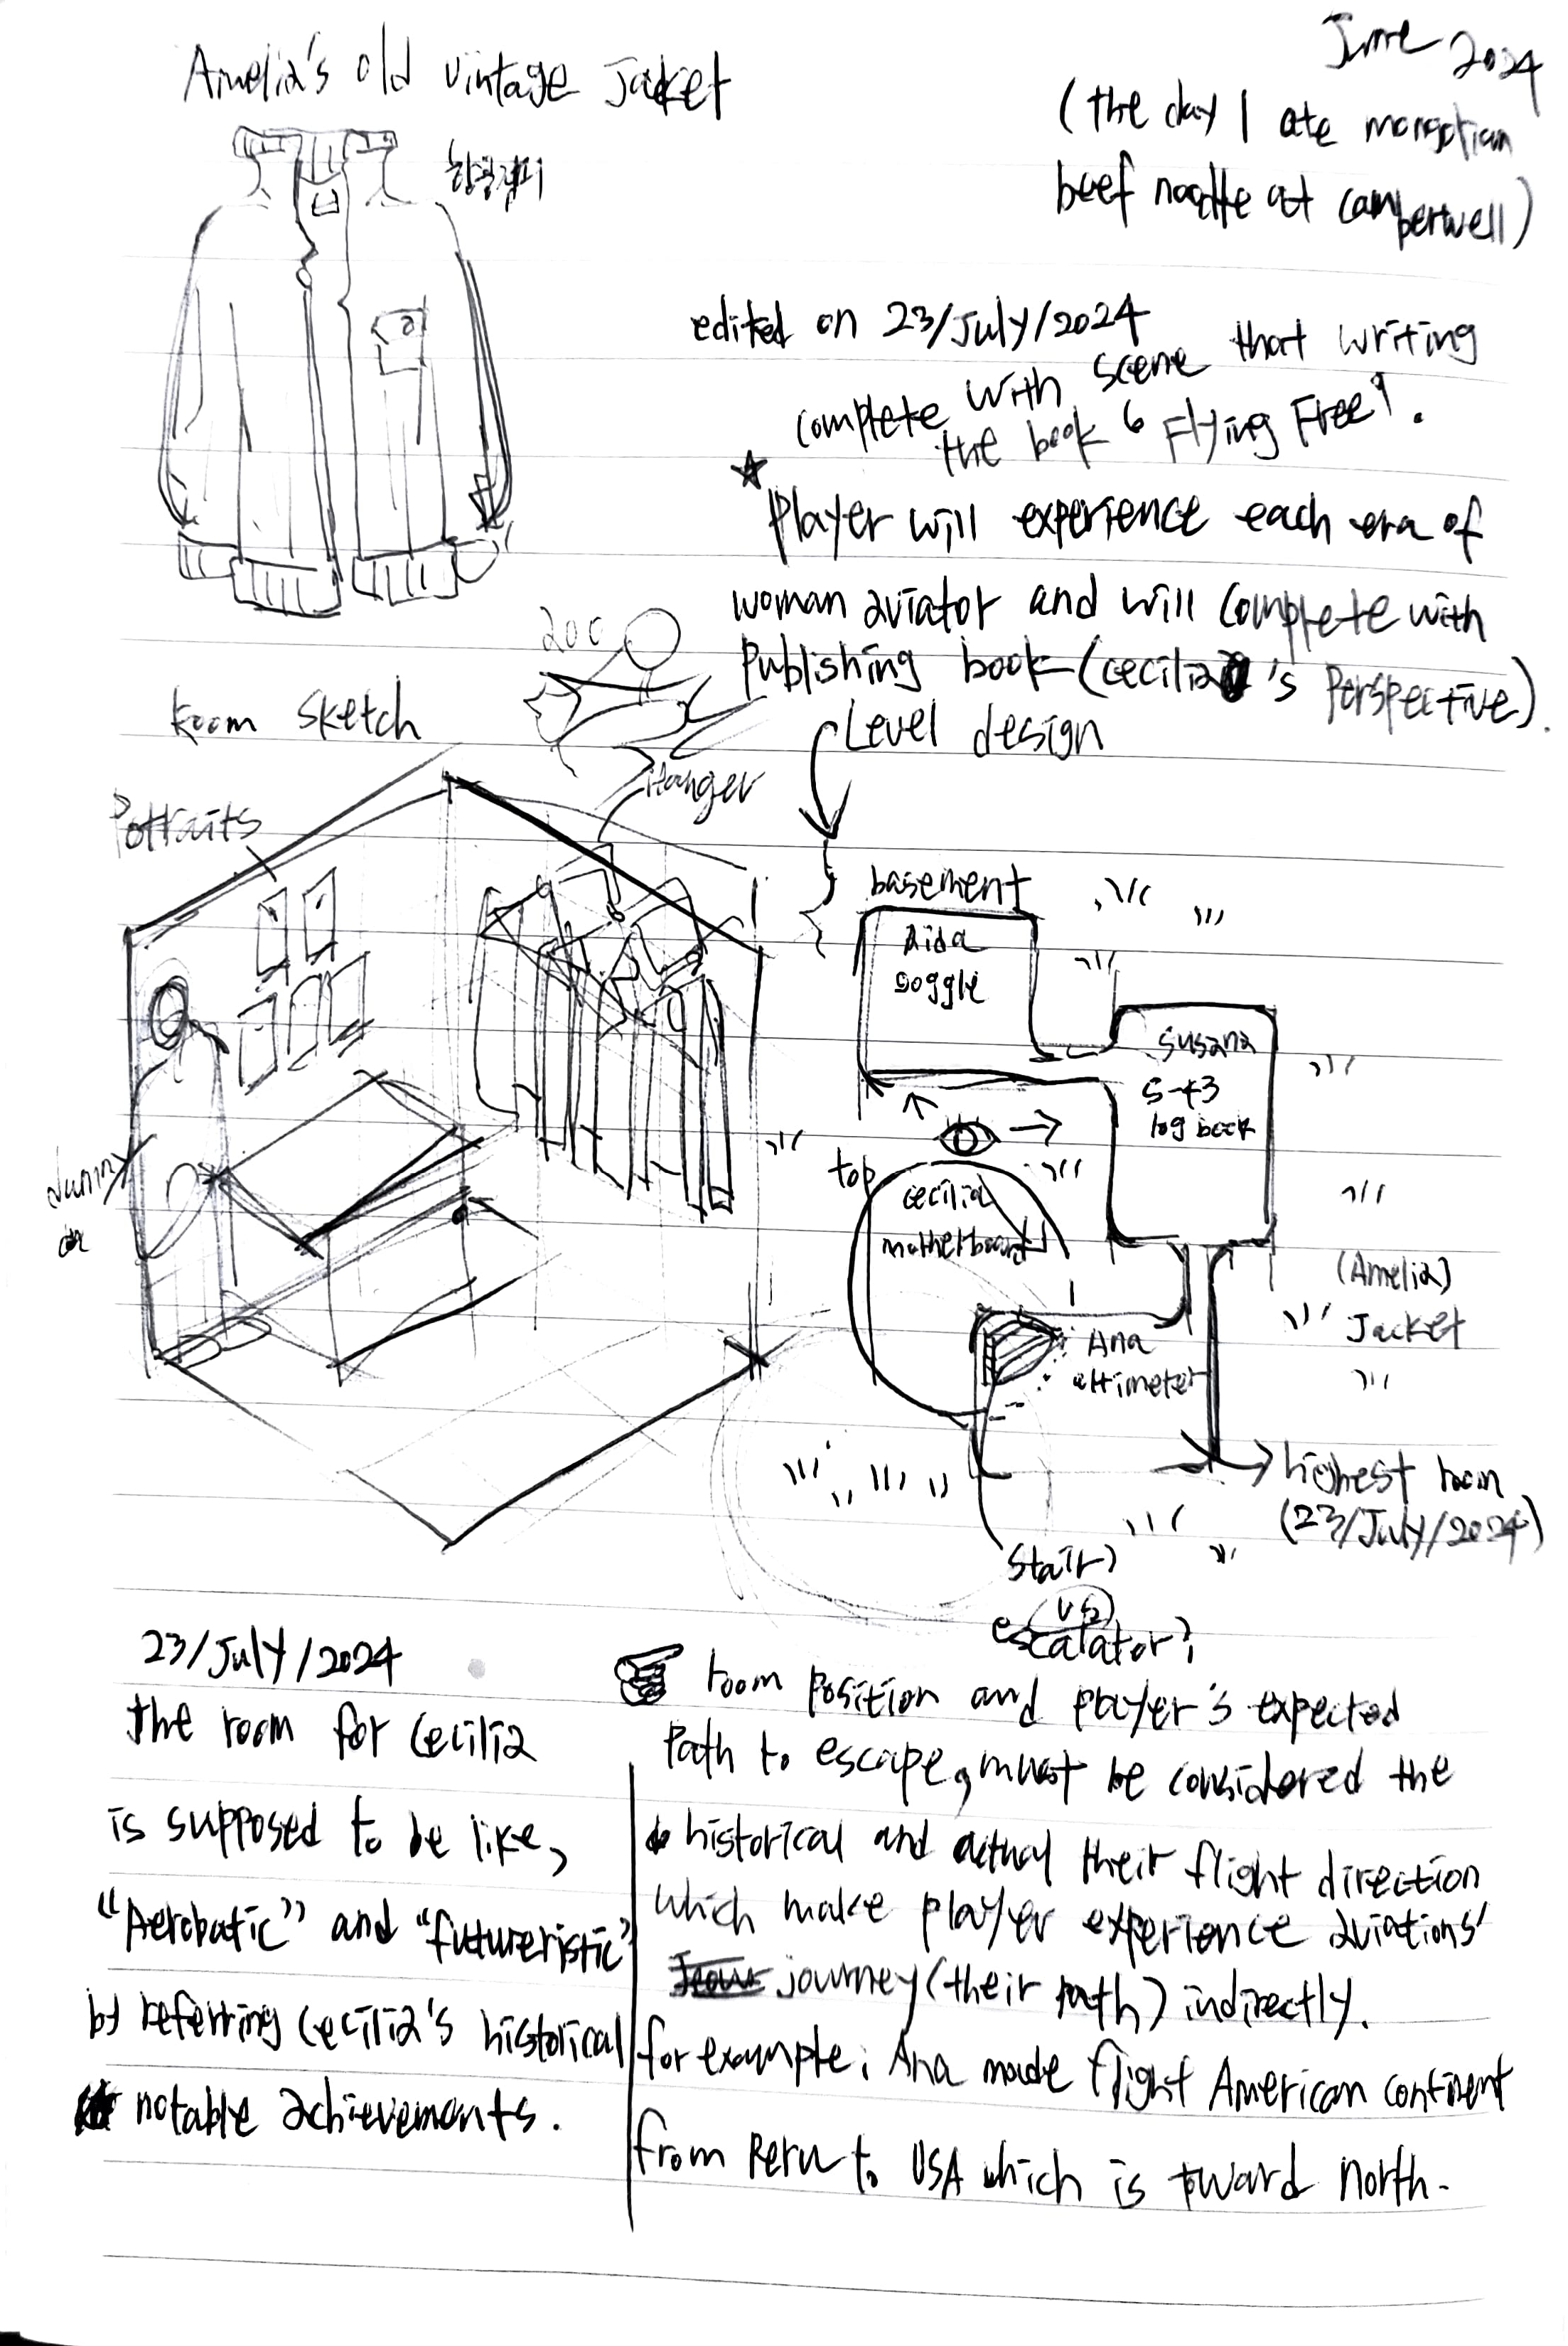 June 2024
(the day I ate mongolian
beef noodle at camberwell)
Amelia's old vintage Jacket
edited on 23/July/2024
complete with scene that writing
the book 'Flying Free'.
★ Player will experience each era of
woman aviator and will complete with
Publishing book (cecilia's Perspective).
Level design
200
Room Sketch
Hanger
Pottraits
basement
Aida
goggle
Susana
S-43
log book
top
cecilia
motherboard
(Amelia)
Jacket
Ana
altimeter
highest room
(23/July/2024)
Stair?
(vs)
escalator?
23/July/2024
the room for Cecilia
is supposed to be like,
"Aerobatic" and "futureristic"
by referring Cecilia's historical
notable achievements.
room position and player's expected
Path to escape, must be considered the
historical and actual their flight direction
which make player experience aviations'
journey (their path) indirectly.
for example: Ana made flight American continent
from Peru to USA which is toward north.